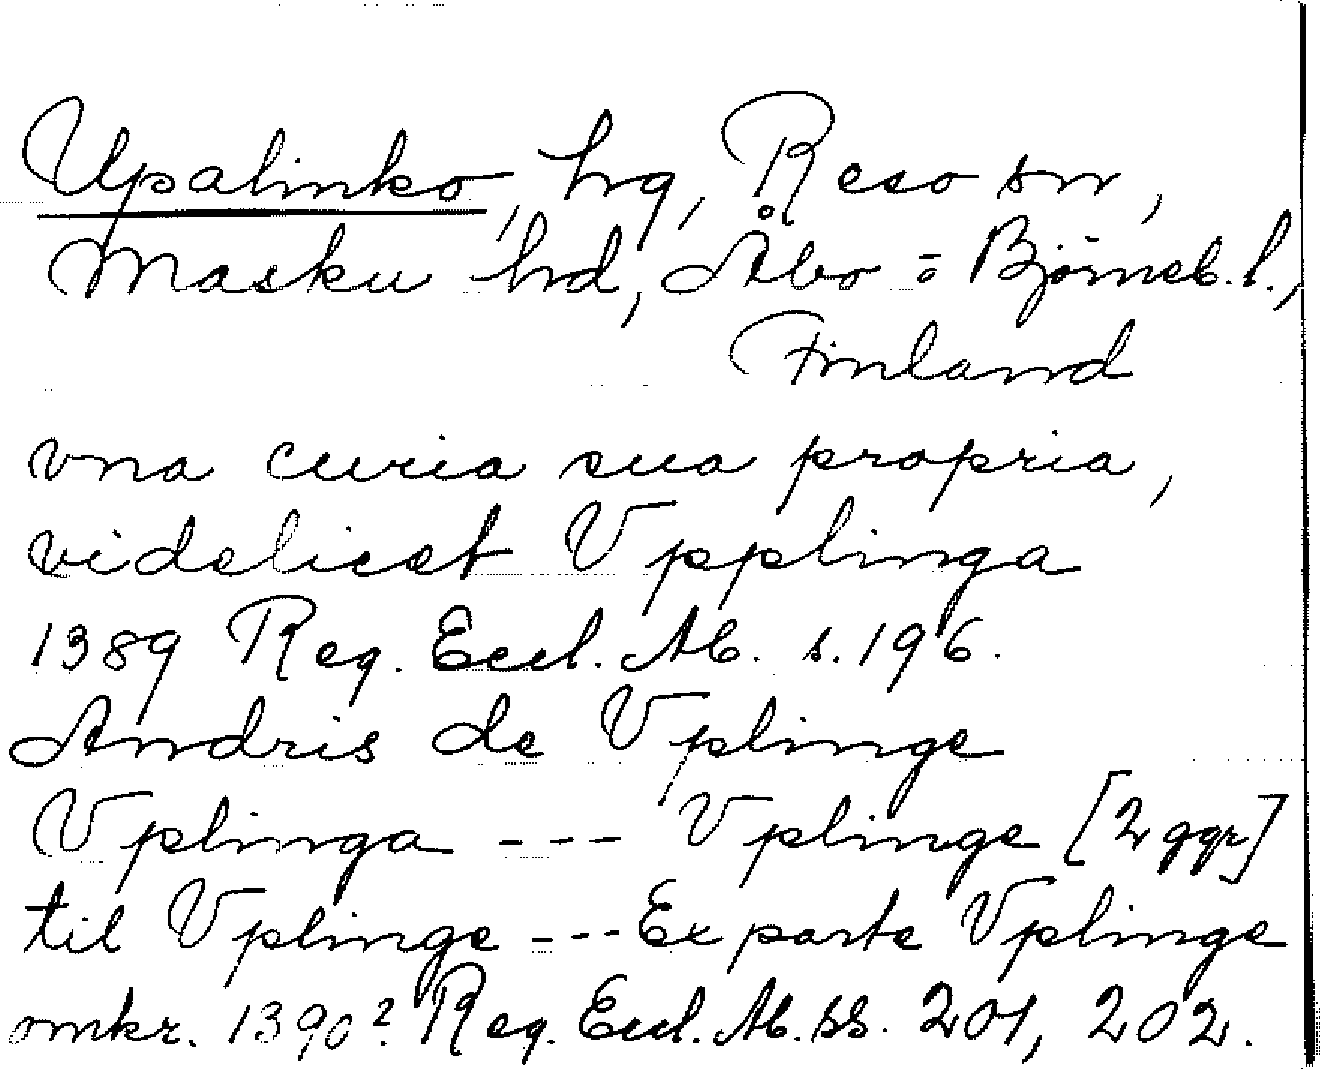 Upalinko, hg, Reso sn,
Masku hd, Åbo = Björneb. l.,
Finland
vna curia sua propria,
videlicet Vpplinga
1389 Reg. Eccl. Ab. s. 196.
Andris de Vplinge
Vplinga --- Vplinge [2 ggr]
til Vplinge --- Ex parte Vplinge
omkr. 1390? Reg. Eccl. Ab. ss. 201, 202.